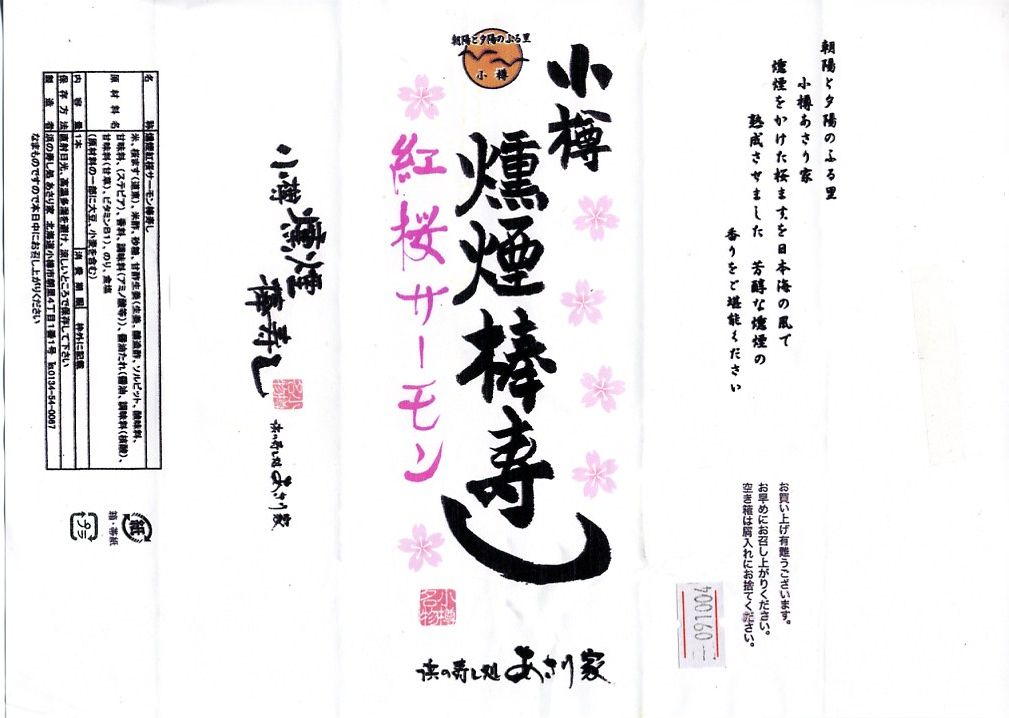 朝陽と夕陽のふる里
小樽あさり家
燻煙をかけた桜ますを日本海の風で
熟成させました 芳醇な燻煙の
香りをご堪能ください
お買い上げ有難うございます。
お早めにお召し上がりください。
空き箱は屑入れにお捨てください。
091004
朝陽と夕陽のふる里
小樽
小樽
燻煙棒寿し
紅桜サーモン
小樽名物
浜の寿し処 あさり家
小樽
燻煙
棒寿し
浜の寿し処 あさり家
名称 燻煙紅桜サーモン棒寿し
原材料名 米、桜ます(道東)、米酢、砂糖、甘酢生姜(生姜、醸造酢、ソルビット、酸味料、
甘味料、(ステビア)、香料、調味料(アミノ酸等))、醤油たれ(醤油、調味料(核酸)、
甘味料(甘草)、ビタミンB1)、のり、食塩
(原材料の一部に大豆、小麦を含む)
内容量 1本 消費期限 枠外に記載
保存方法 直射日光、高温多湿を避け、涼しいところで保存して下さい
製造者 浜の寿し処 あさり家 北海道小樽市朝里4丁目1番1号 ℡0134-54-0067
なまものですので本日中にお召し上がりください
紙
箱・帯紙
プラ